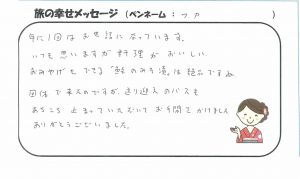 旅の幸せメッセージ (ペンネーム：フク)
年に1回はお世話になっています。
いつも思いますが料理がおいしい
おみやげもできる「鮭のみそ漬」は絶品ですね
団体で来たのですが、送り迎えのバスも
あちこち止まっていただいてお手間でかけました
ありがとうございました。